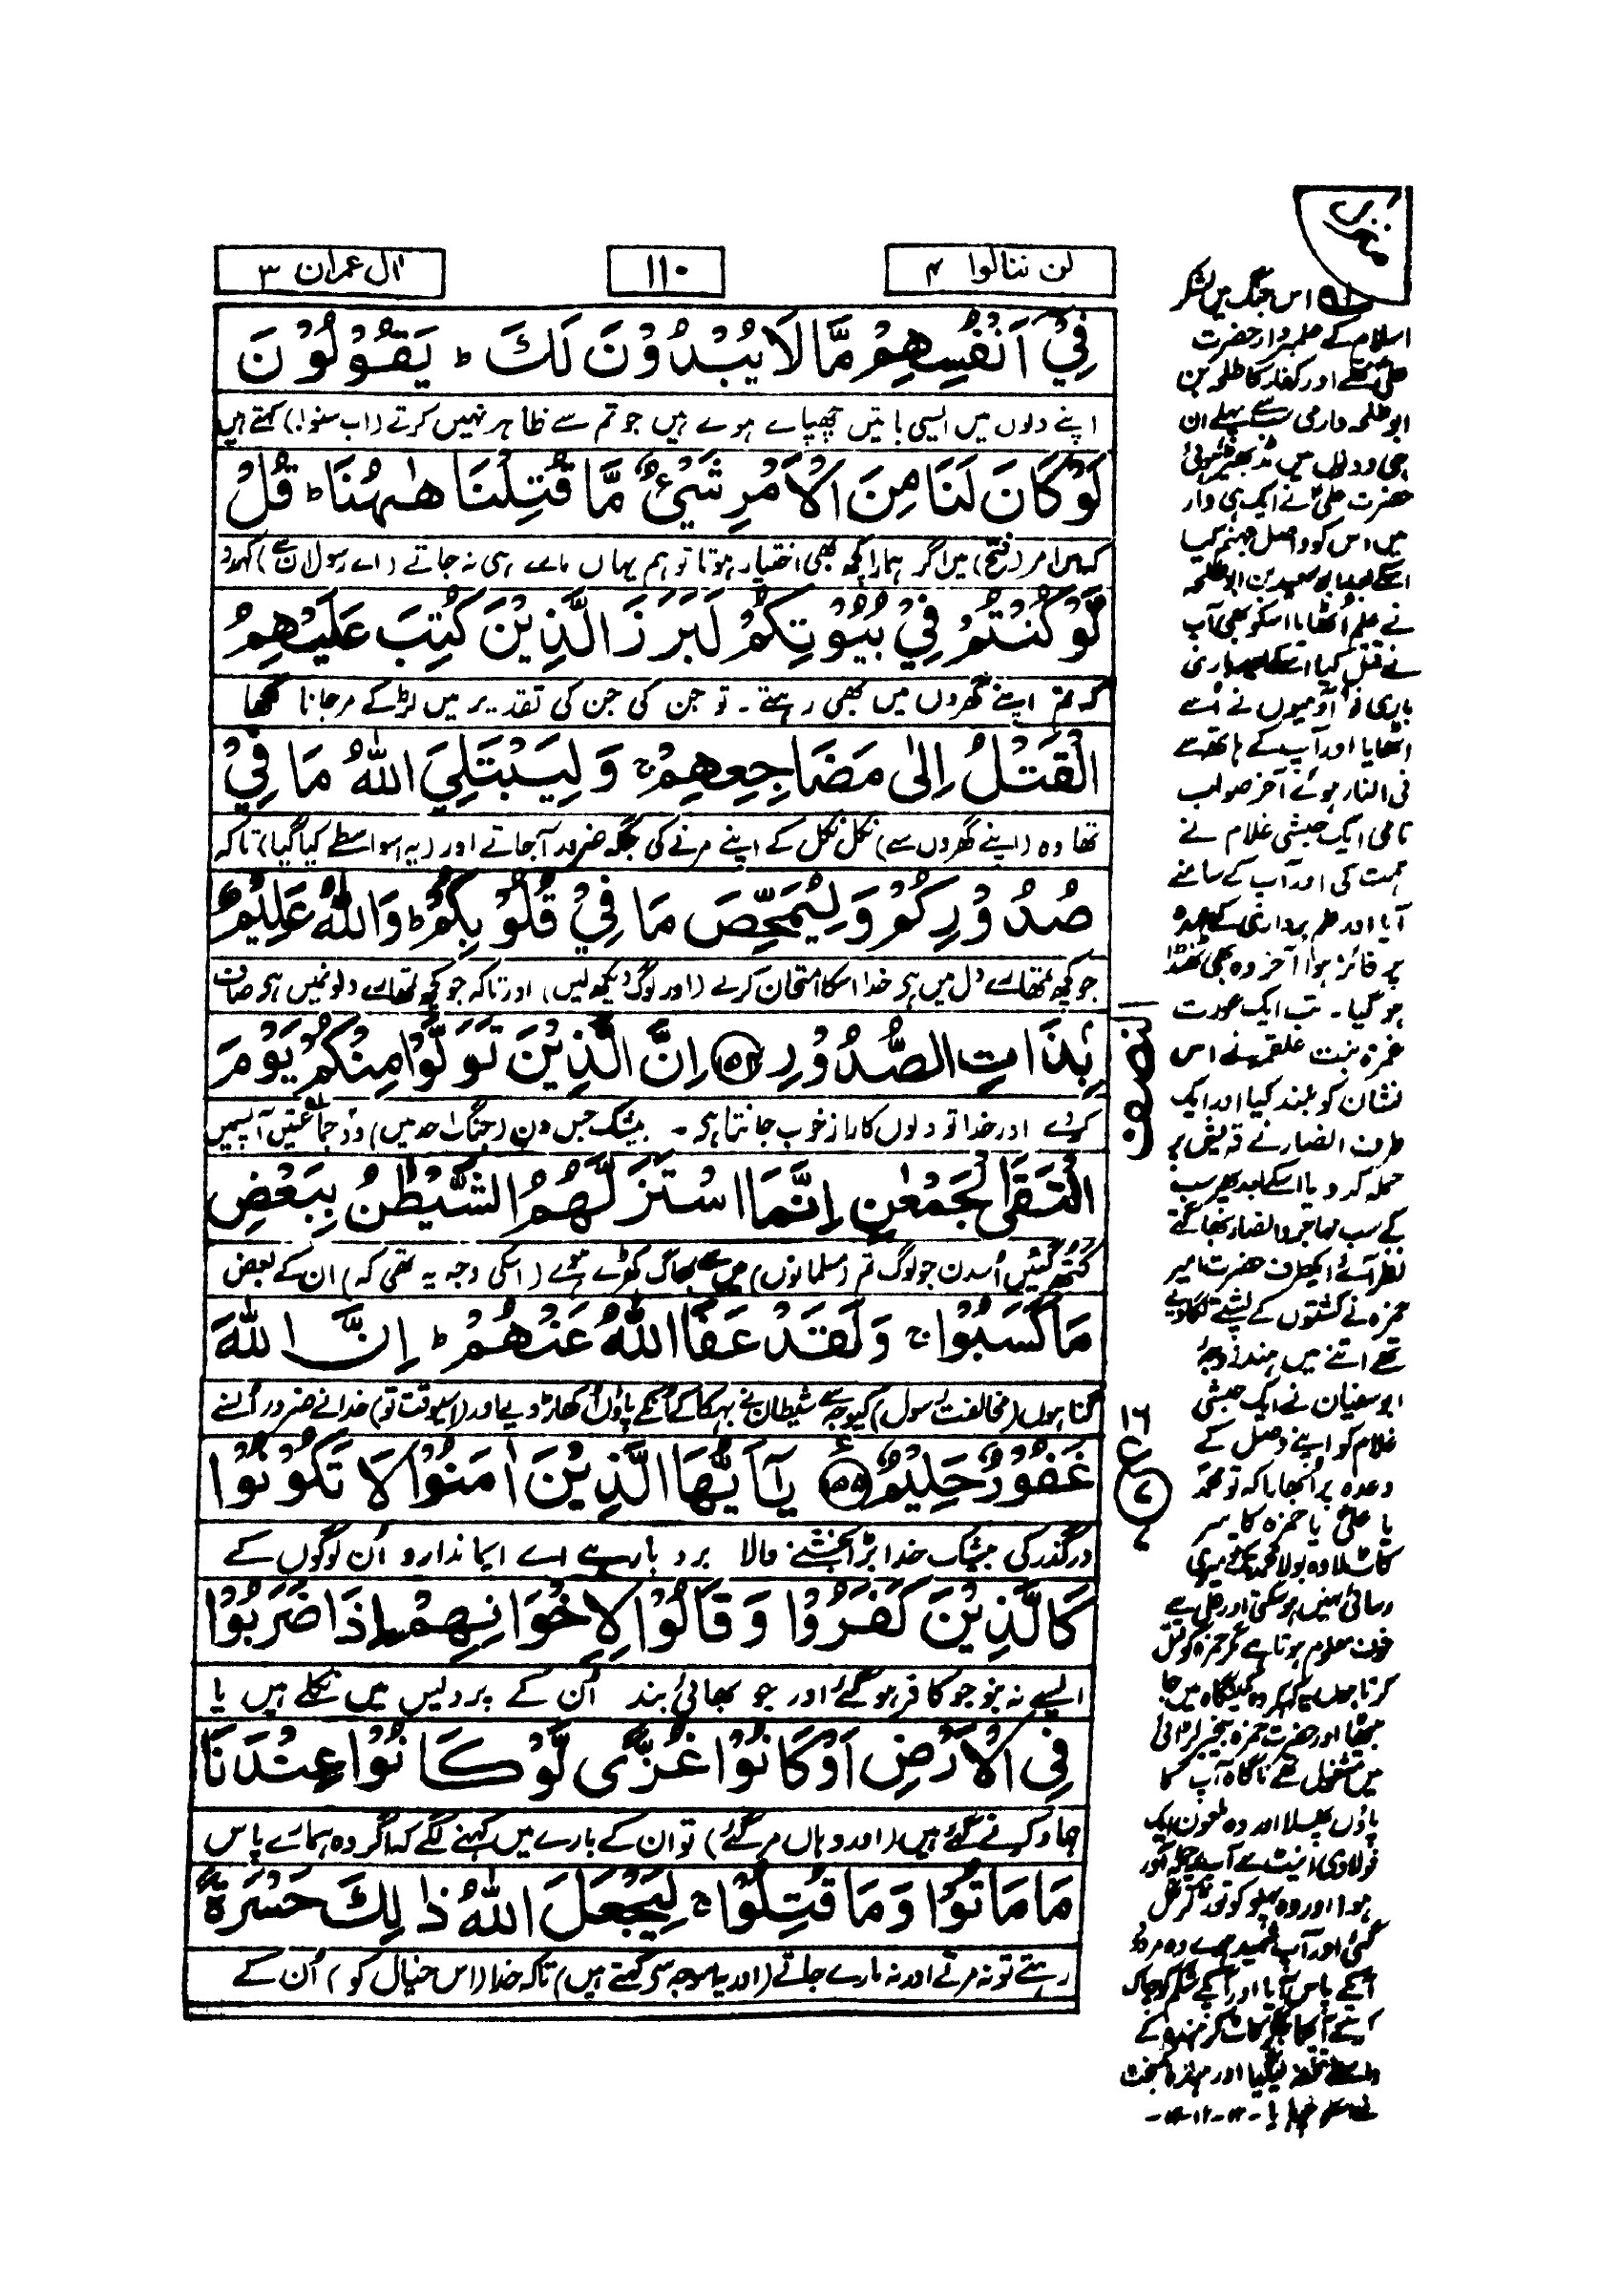 لن تنالوا ۴
۱۱۰
اٰل عمران ۳
فِيْۤ اَنْفُسِهِمْ مَّا لَا يُبْدُوْنَ لَكَ ؕ يَقُوْلُوْنَ
اپنے دلوں میں ایسی باتیں چھپاے ہوے ہیں جو تم سے ظاہر نہیں کرتے (اب سنو!) کہتے ہیں
لَوْ كَانَ لَنَا مِنَ الْاَمْرِ شَيْءٌ مَّا قُتِلْنَا هٰهُنَا ؕ قُلْ
کہ اس امر (فتح) میں اگر ہمارا کچھ بھی اختیار ہوتا تو ہم یہاں مارے ہی نہ جاتے (اے رسول ان سے) کہدو
لَّوْ كُنْتُمْ فِيْ بُيُوْتِكُمْ لَبَرَزَ الَّذِيْنَ كُتِبَ عَلَيْهِمُ
کہ تم اپنے گھروں میں بھی رہتے ۔ تو جن کی جن کی تقدیر میں لڑکے مرجانا لکھا
الْقَتْلُ اِلٰى مَضَاجِعِهِمْ ۚ وَ لِيَبْتَلِيَ اللّٰهُ مَا فِيْ
تھا وہ (اپنے گھروں سے) نکل نکل کے اپنے مرنے کی جگہ ضرور آجاتے اور (یہ اسواسطے کیا گیا) تاکہ
صُدُوْرِكُمْ وَ لِيُمَحِّصَ مَا فِيْ قُلُوْبِكُمْ ؕ وَ اللّٰهُ عَلِيْمٌۢ
جو کچھ تمھارے دل میں ہی خدا اسکا امتحان کرے (اور لوگ دیکھ لیں) اور تاکہ جو کچھ تمھارے دلونمیں ہی صاف
بِذَاتِ الصُّدُوْرِ ﴿۱۵۴﴾ اِنَّ الَّذِيْنَ تَوَلَّوْا مِنْكُمْ يَوْمَ
کردے اور خدا تو دلوں کا راز خوب جانتا ہی ۔ بیشک جس دن (جنگ احد میں) دو جماعتیں آپسمیں
الْتَقَى الْجَمْعٰنِ اِنَّمَا اسْتَزَلَّهُمُ الشَّيْطٰنُ بِبَعْضِ
گتھ گئیں اُسدن جو لوگ تم (مسلمانوں) میں سے بھاگ کھڑے ہوے (اسکی وجہ یہ تھی کہ) ان کے بعض
مَا كَسَبُوْا ۚ وَ لَقَدْ عَفَا اللّٰهُ عَنْهُمْ ؕ اِنَّ اللّٰهَ
گناہوں (مخالفت رسول) کیوجہ سے شیطان نے بہکا کے انکے پاؤں اکھاڑ دیے اور (اسیوقت تو) خدا نے ضرور اُنسے
غَفُوْرٌ حَلِيْمٌ ﴿۱۵۵﴾ يٰۤاَيُّهَا الَّذِيْنَ اٰمَنُوْا لَا تَكُوْنُوْا
درگذر کی بیشک خدا بڑا بخشنے والا بردبار ہے اے ایماندارو اُن لوگوں کے
كَالَّذِيْنَ كَفَرُوْا وَ قَالُوْا لِاِخْوَانِهِمْ اِذَا ضَرَبُوْا
ایسے نہ بنو جو کافر ہوگئے اور جو بھائی بند اُن کے پردیس میں نکلے ہیں یا
فِي الْاَرْضِ اَوْ كَانُوْا غُزًّى لَّوْ كَانُوْا عِنْدَنَا
جہاد کرنے گئے ہیں (اور وہاں مر گئے) تو ان کے بارے میں کہنے لگے کہ اگر وہ ہمارے پاس
مَا مَاتُوْا وَ مَا قُتِلُوْا ۚ لِيَجْعَلَ اللّٰهُ ذٰلِكَ حَسْرَةً
رہتے تو نہ مرتے اور نہ مارے جاتے (اور یہ اسوجہ سی کہتے ہیں) تاکہ خدا (اس خیال کو) اُن کے
النصف
۱۶
ع
۷
اس جنگ میں لشکر
اسلام کے علمبردار حضرت
علیؑ تھے اور کفار کا طلحہ بن
ابو طلحہ دارمی سے پہلے ان
ہی دونوں میں مڈبھیڑ ہوئی
حضرت علیؑ نے ایک ہی وار
میں اس کو واصل جہنم کیا
اسکے بعد ابو سعید بن ابو طلحہ
نے علم اُٹھایا اسکو بھی آپ
نے قتل کیا اسکے بعد باری
باری نو آدمیوں نے اُسے
اٹھایا اور آپ کے ہاتھ سے
فی النار ہوئے آخر صواب
نامی ایک حبشی غلام نے
ہمت کی اور آپ کے سامنے
آیا اور علم برداری کے عہدہ
پر فائز ہوا آخر وہ بھی ٹھنڈا
ہو گیا ۔ تب ایک عورت
عمرہ بنت علقمہ نے اس
نشان کو بلند کیا اور ایک
طرف انصار نے قریش پر
حملہ کر دیا اسکے بعد پھر سب
کے سب مہاجر و انصار بھاگتے
نظر آئے ایکطرف حضرت امیر
حمزہ نے کشتوں کے پشتے لگا دیے
تھے اتنے میں ہند زوجہ
ابو سفیان نے ایک حبشی
غلام کو اپنے وصل کے
وعدہ پر اُبھارا کہ تو محمدؐ
یا علیؑ یا حمزہ کا سر
کاٹ لا وہ بولا محمد تک میری
رسائی نہیں ہو سکتی اور علی سے
خوف معلوم ہوتا ہے مگر حمزہ کو قتل
کرتا ہوں یہ کہہ کر وہ کمینگاہ میں جا
بیٹھا اور حضرت حمزہ بیخبر لڑائی
میں مشغول تھے ناگاہ آپ کا
پاؤں پھسلا اور وہ ملعون ایک
ہوا اور وہ پہلو کو توڑ کر نکل
گئی اور آپ شہید ہوے وہ مردود
آپکے پاس آیا اور آپکے شکم کو چاک